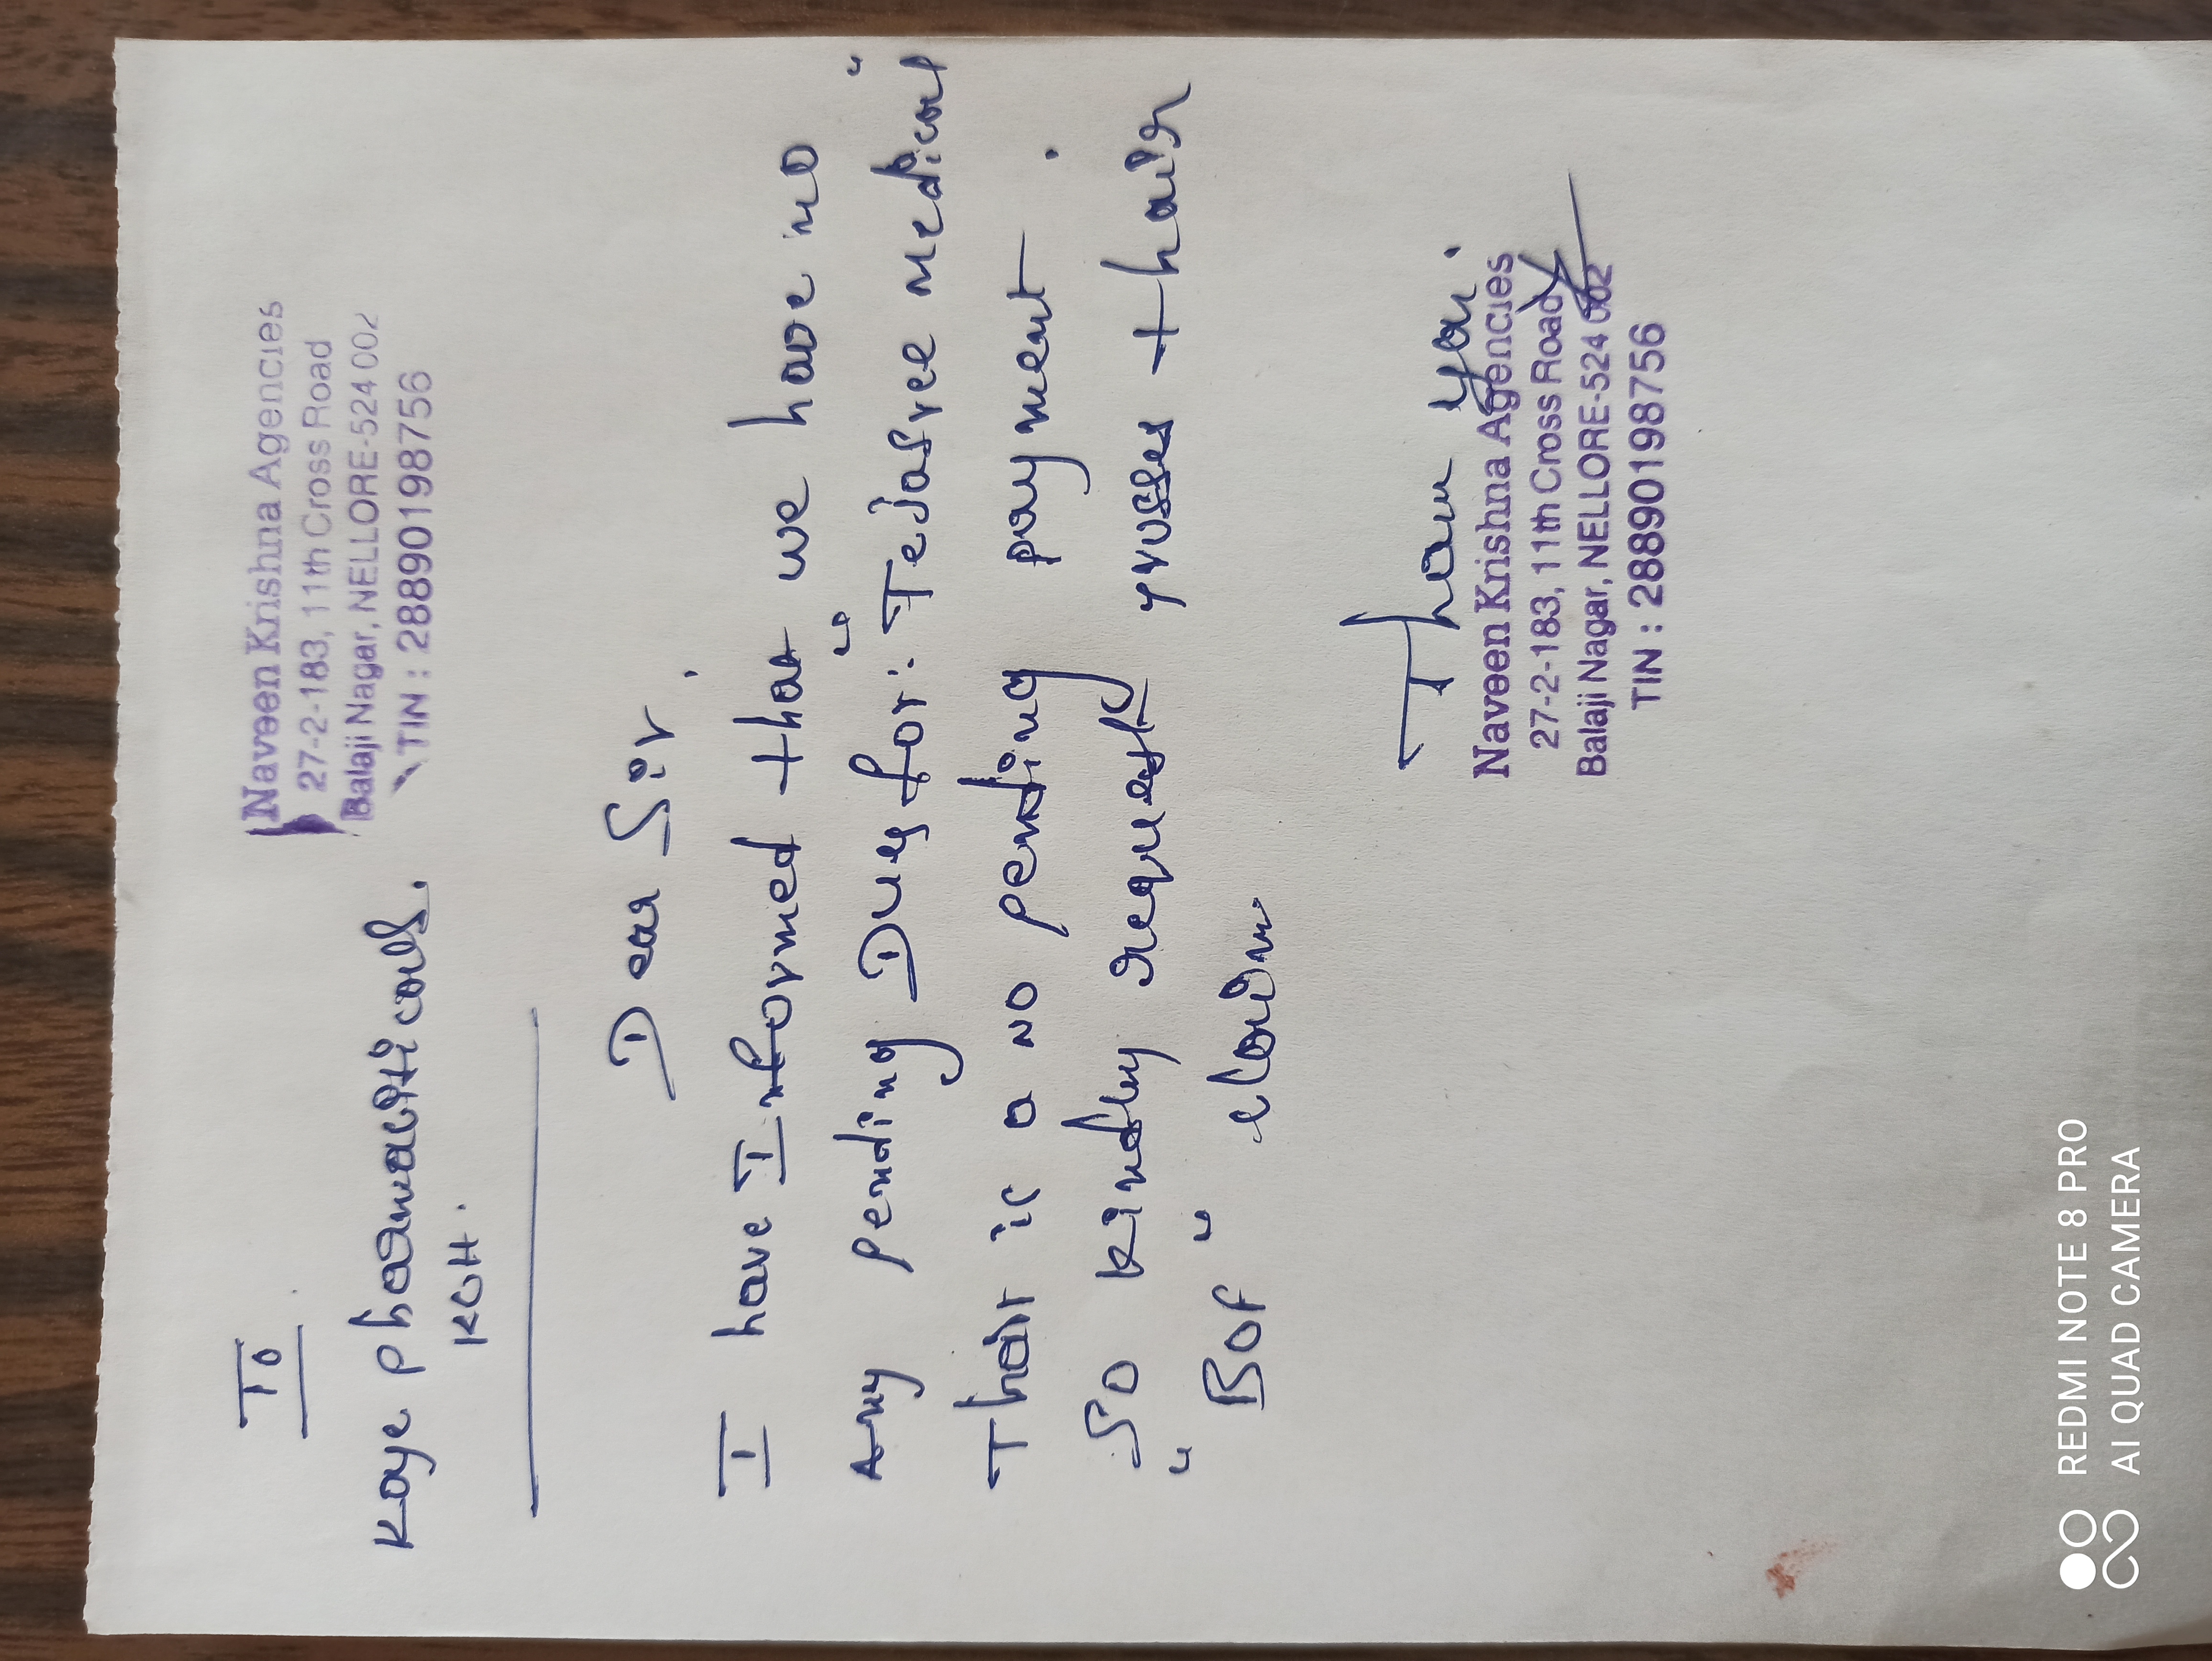 To
Naveen Krishna Agencies
27-2-183, 11th Cross Road
Balaji Nagar, NELLORE-524 002
TIN : 28890198756
Kaye Pharmauticals.
KCH.
Dear Sir,
I have Informed that we have no
Any pending Dues for: "Tejasree medical"
That is a no pending payment.
So kindly request thair
"BOF" claim
Than you.
Naveen Krishna Agencies
27-2-183, 11th Cross Road
Balaji Nagar, NELLORE-524 002
TIN : 28890198756
REDMI NOTE 8 PRO
AI QUAD CAMERA